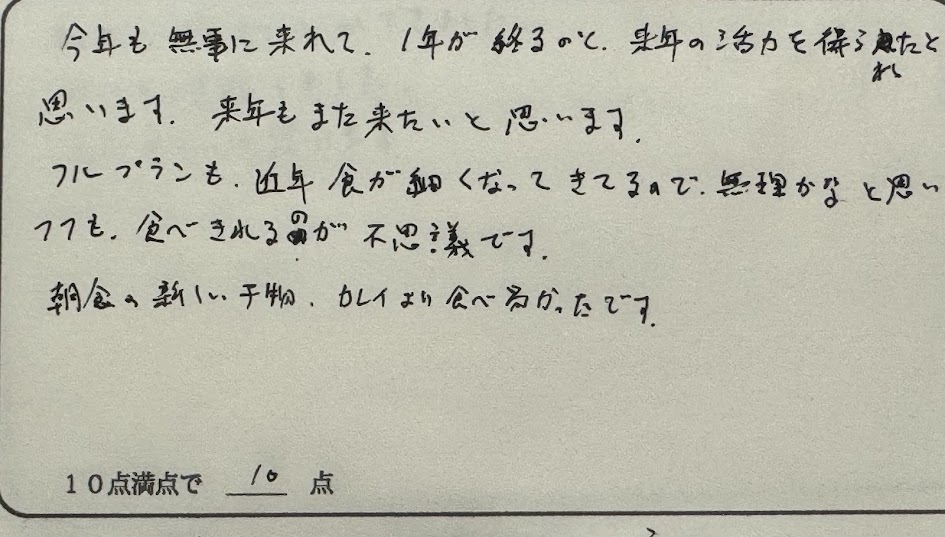 今年も無事に来れて、1年が終るのと、来年の活力を得られたと
思います。来年もまた来たいと思います。
フループランも、近年食が細くなってきてるので、無理かなと思い
つつも、食べきれるのが不思議です。
朝食の新しい干物、カレイより食べ易かったです。
10点満点で 10 点